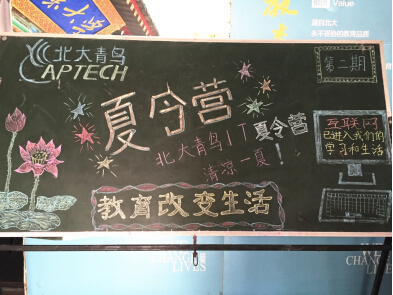 Value
源自北大
北大青鸟
APTECH
第二期
夏令营
北大青鸟IT夏令营
清凉一夏!
互联网
已进入我们的
学习和生活
教育改变生活
CHANG
LIVES